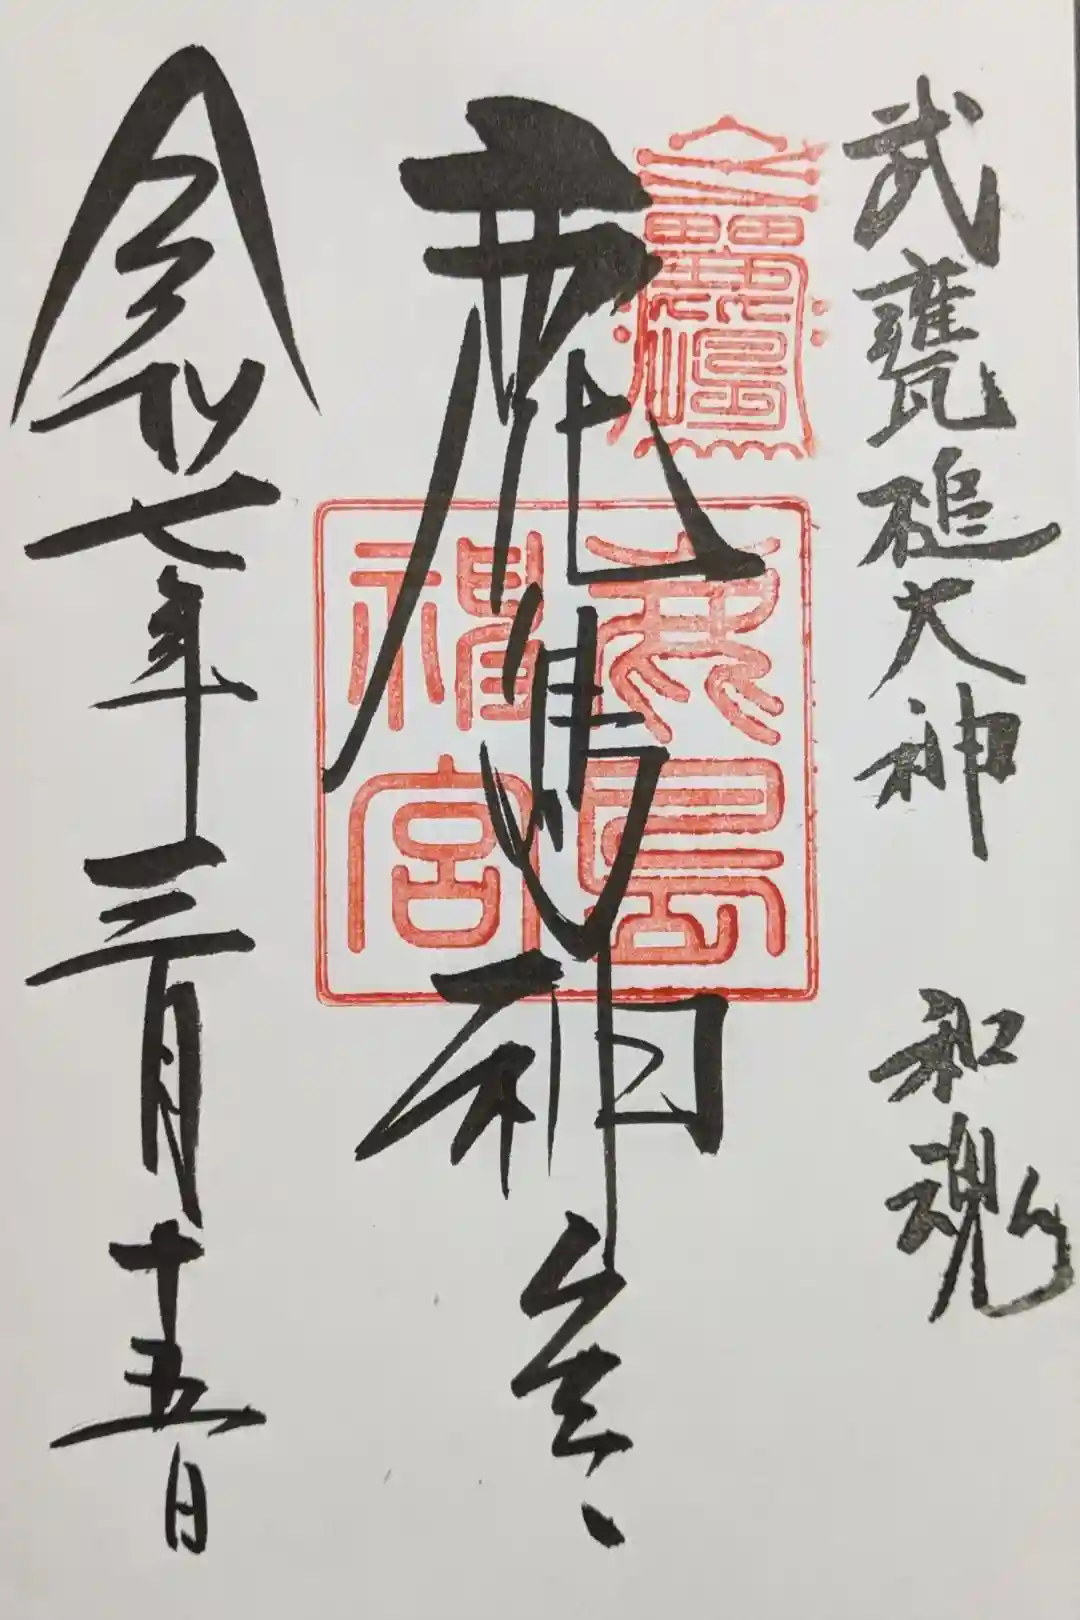 武甕槌大神 和魂
鹿島神宮
鹿島神宮
令和七年三月十五日